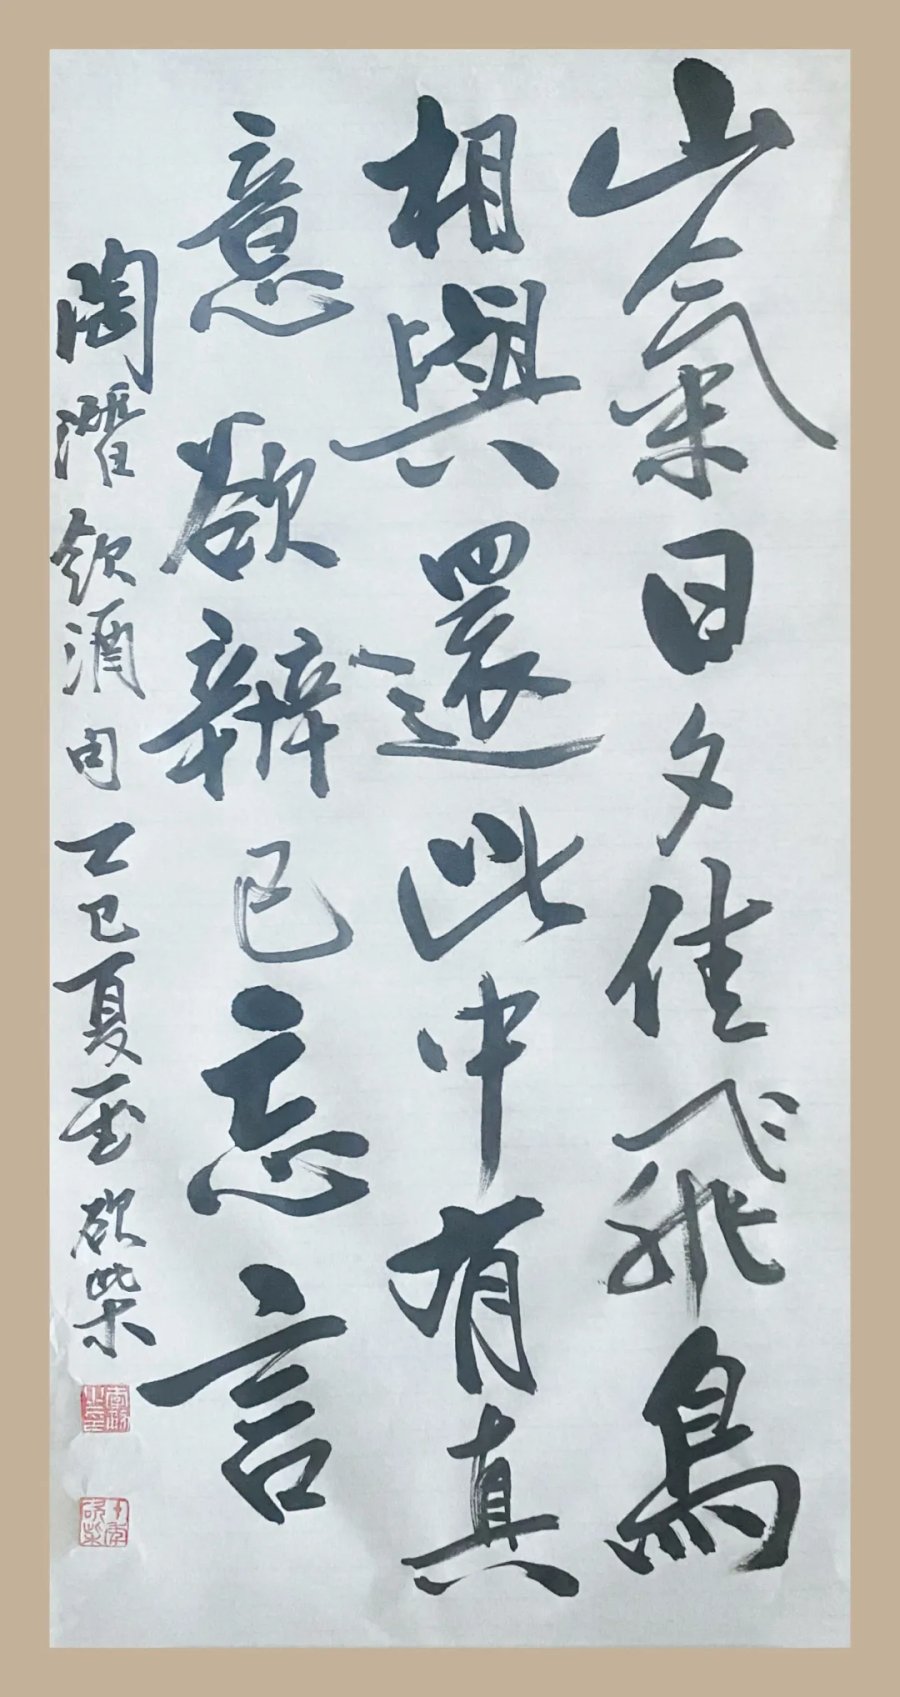 山氣日夕佳飛鳥
相與還此中有真
意欲辨已忘言
陶潛飲酒句乙巳夏至欲柴